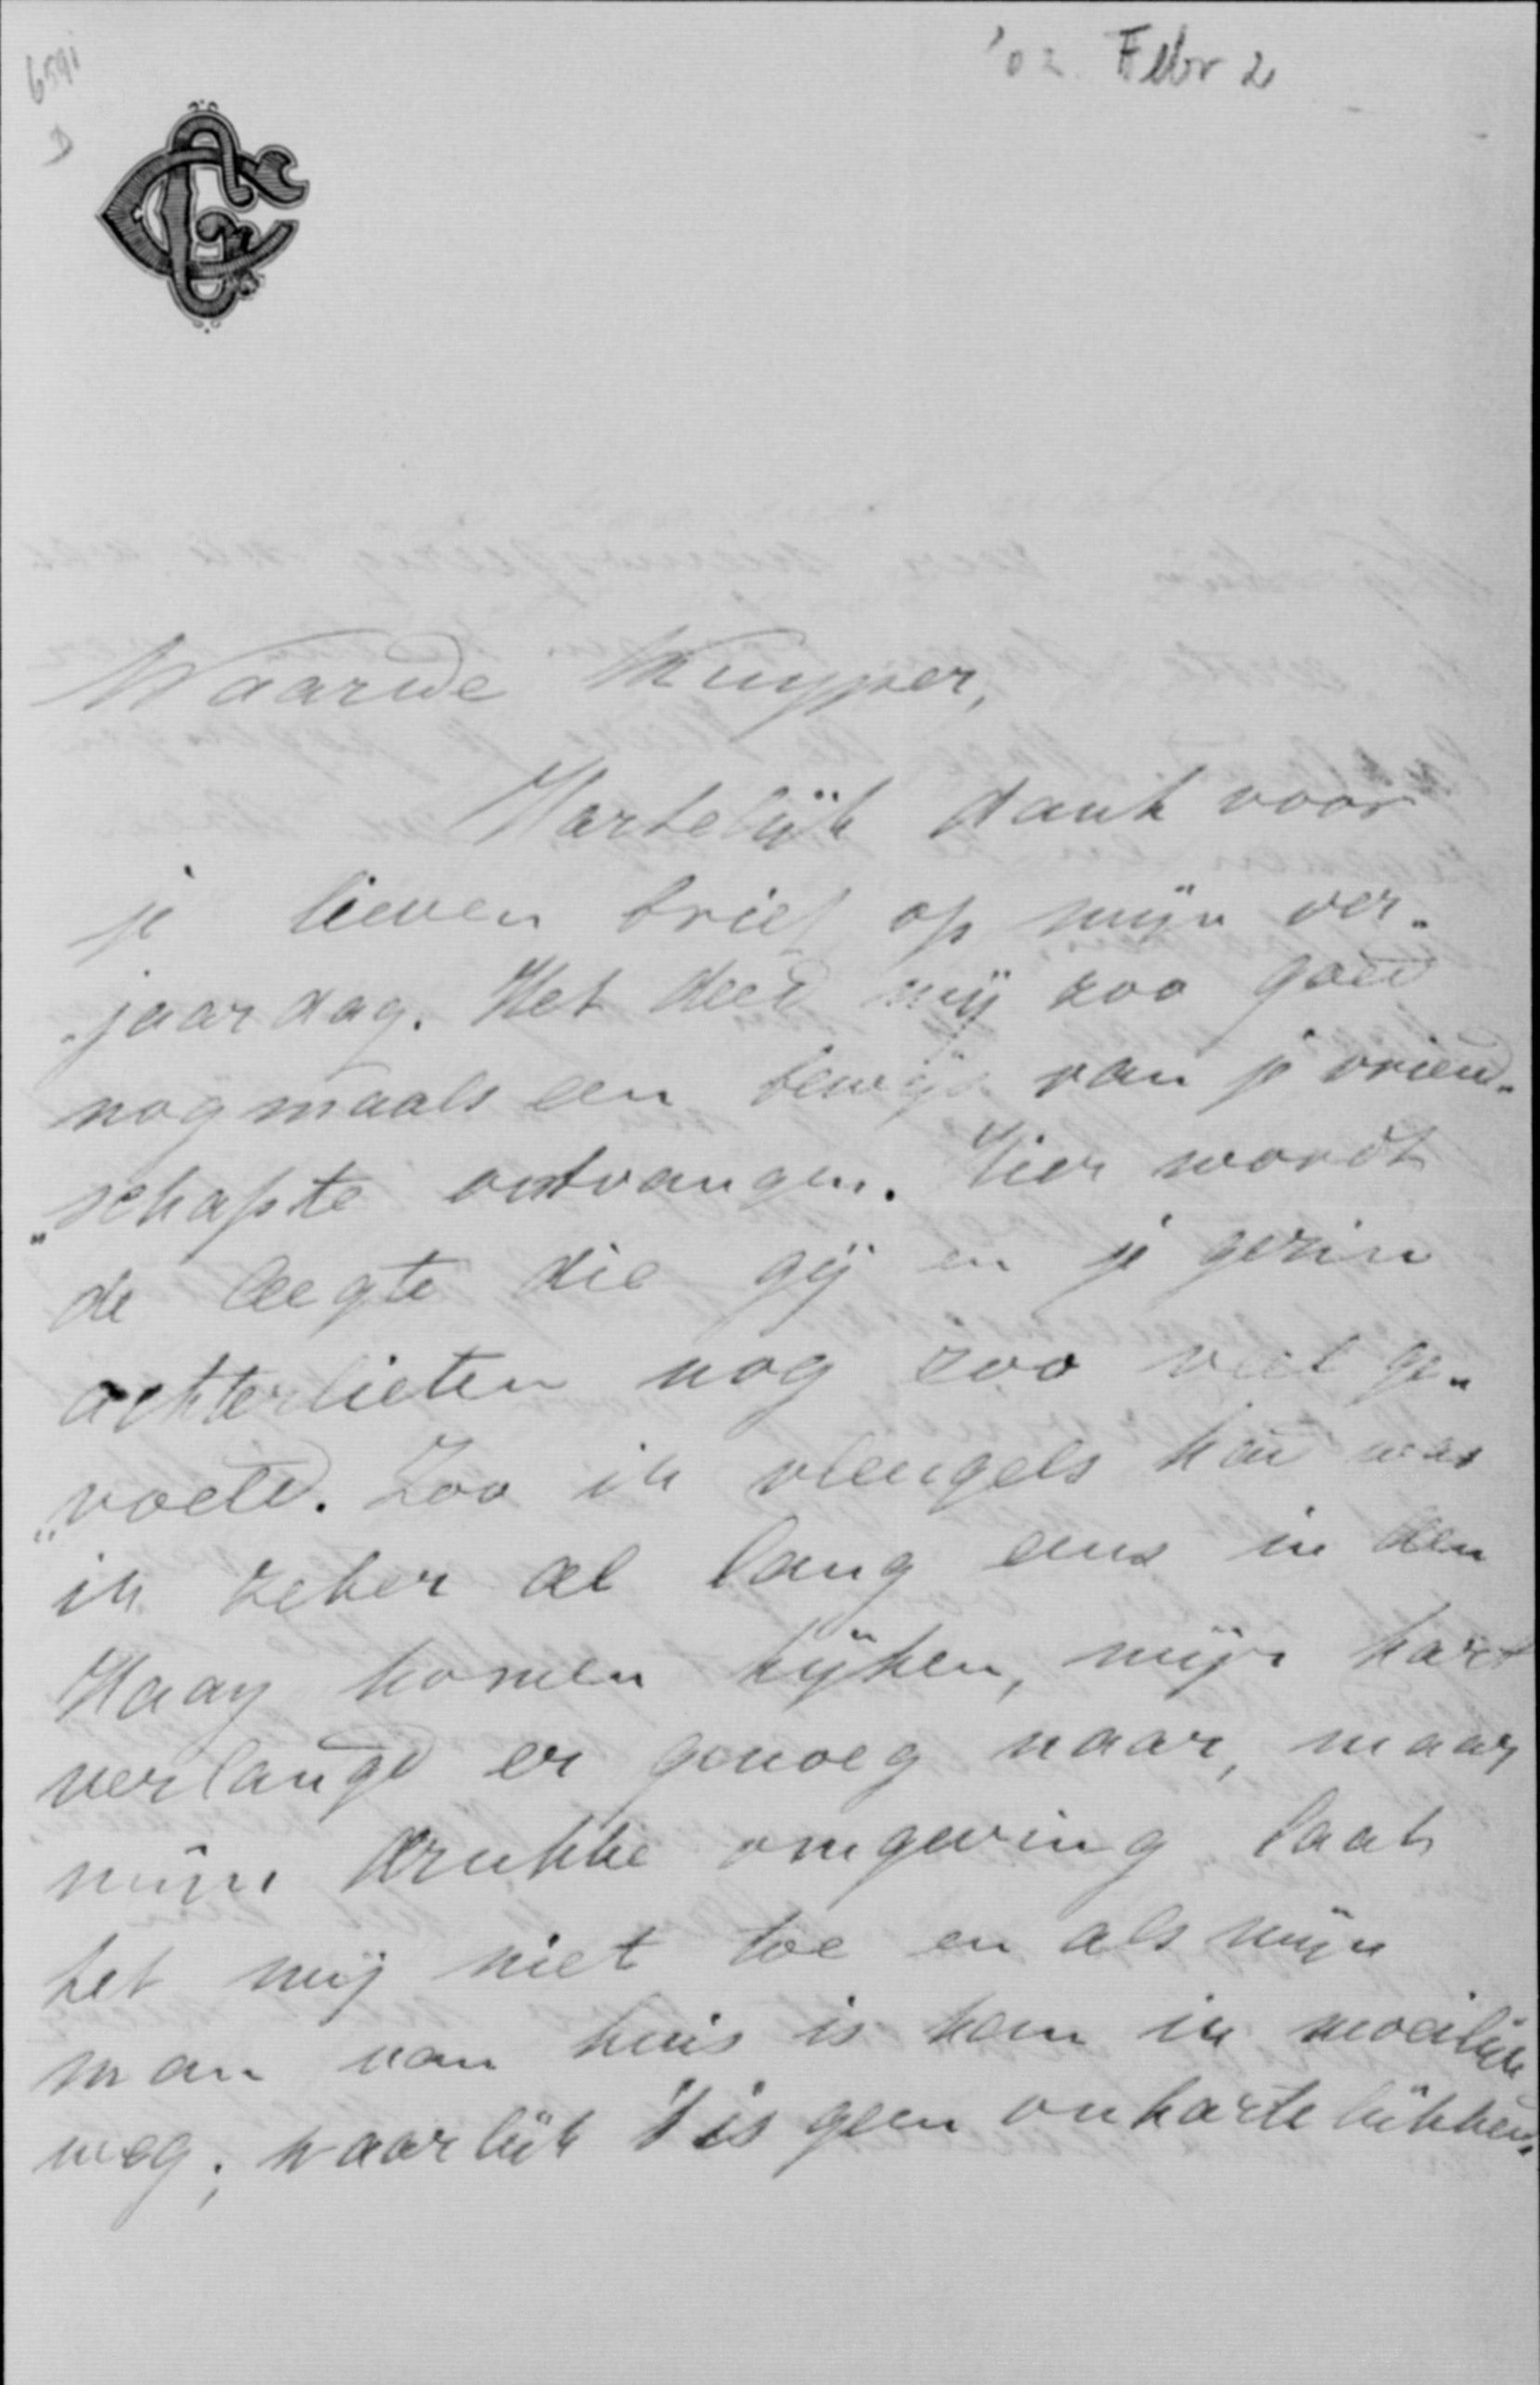 6591
D
'02. Febr 2
Waarde Kuyper,
Hartelijk dank voor
je lieven brief op mijn ver„
„jaardag. Het deed mij zoo goed
nogmaals een bewijs van je vriend„
„schap te ontvangen. Hier wordt
de leegte die gij en je gezin
achterlieten nog zoo veel ge„
„voeld. Zoo ik vleugels had was
ik zeker al lang eens in den
Haag komen kijken, mijn hart
verlangd er genoeg naar, maar
mijn drukke omgeving laat
het mij niet toe en als mijn
man van huis is kan ik moeilijk
weg; waarlijk 't is geen onhartelijkheid„